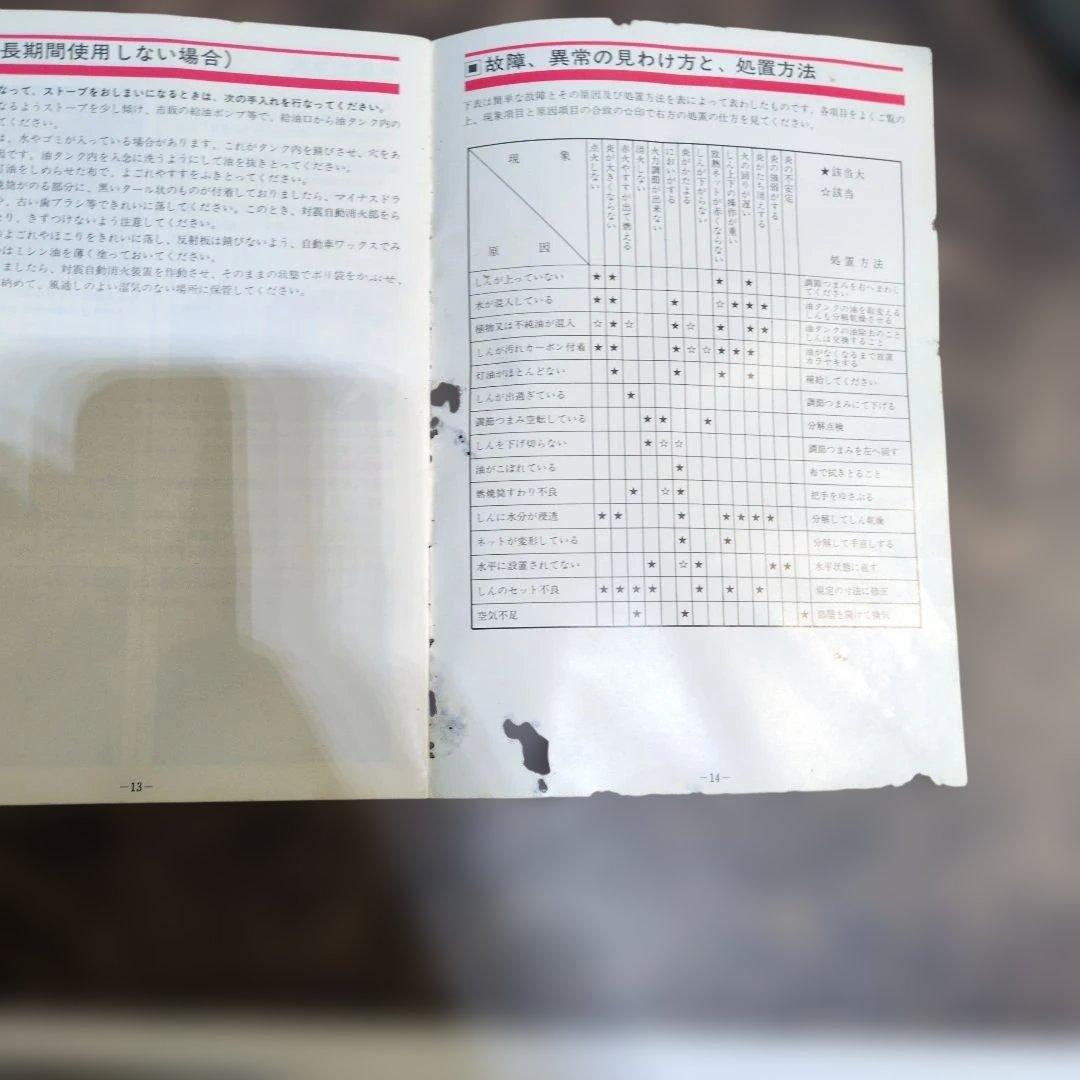 長期間使用しない場合)
なって、ストーブをおしまいになるときは、次の手入れを行なってください。
なるようストーブを少し傾け、市販の給油ポンプ等で、給油口から油タンク内の
てください。
は、水やゴミが入っている場合があります。これがタンク内を錆びさせ、穴をあ
因です。油タンク内を入念に洗うようにして油を抜きとってください。
灯油をしめらせた布で、よごれやすすをふきとってください。
焼筒がのる部分に、黒いタール状のものが付着しておりましたら、マイナスドラ
や、古い歯ブラシ等できれいに落してください。このとき、対震自動消火部をら
たり、きずつけないよう注意してください。
のよごれやほこりをきれいに落し、反射板は錆びないよう、自動車ワックスでみ
はミシン油を薄く塗っておいてください。
ましたら、対震自動消火装置を作動させ、そのままの状態でポリ袋をかぶせ、
納めて、風通しのよい湿気のない場所に保管してください。
—13—
■故障、異常の見わけ方と、処置方法
下表は簡単な故障とその原因及び処置方法を表によって表わしたものです。各項目をよくご覧の
上、現象項目と原因項目の合致の☆印で右方の処置の仕方を見てください。
現象
原因
点火しない
炎が大きくならない
赤火やすすが出て燃える
消火しない
火力調節が出来ない
においがする
炎がかたよる
しんが下がらない
放熱ネットが赤くならない
しん上下の操作が重い
火の回りが遅い
炎がたち消えする
炎の強弱がする
炎の不安定
★該当大
☆該当
処置方法
しんが上っていない ★ ★ ★ ★ 調節つまみを右へまわし
てください
水が混入している ★ ★ ★ ☆ ★ ★ ★ 油タンクの油を取変える
しんも分解乾燥させる
植物又は不純油が混入 ☆ ★ ☆ ★ ☆ ★ ★ ★ 油タンクの油除去のこと
しんは交換すること
しんが汚れカーボン付着 ★ ★ ★ ☆ ☆ ★ ★ ★ 油がなくなるまで放置
カラヤキする
灯油がほとんどない ★ ★ ★ ★ 補給してください
しんが出過ぎている ★ 調節つまみにて下げる
調節つまみ空転している ★ ★ ★ 分解点検
しんを下げ切らない ★ ☆ ☆ 調節つまみを左へ回す
油がこぼれている ★ 布で拭きとること
燃焼筒すわり不良 ★ ☆ ★ 把手をゆさぶる
しんに水分が浸透 ★ ★ ★ ★ ★ ★ ★ 分解してしん乾燥
ネットが変形している ★ ★ 分解して手直しする
水平に設置されてない ★ ☆ ★ ★ ★ 水平状態に直す
しんのセット不良 ★ ★ ★ ★ ★ ★ ★ 規定の寸法に修正
空気不足 ★ ★ ★ 部屋を開けて換気
—14—